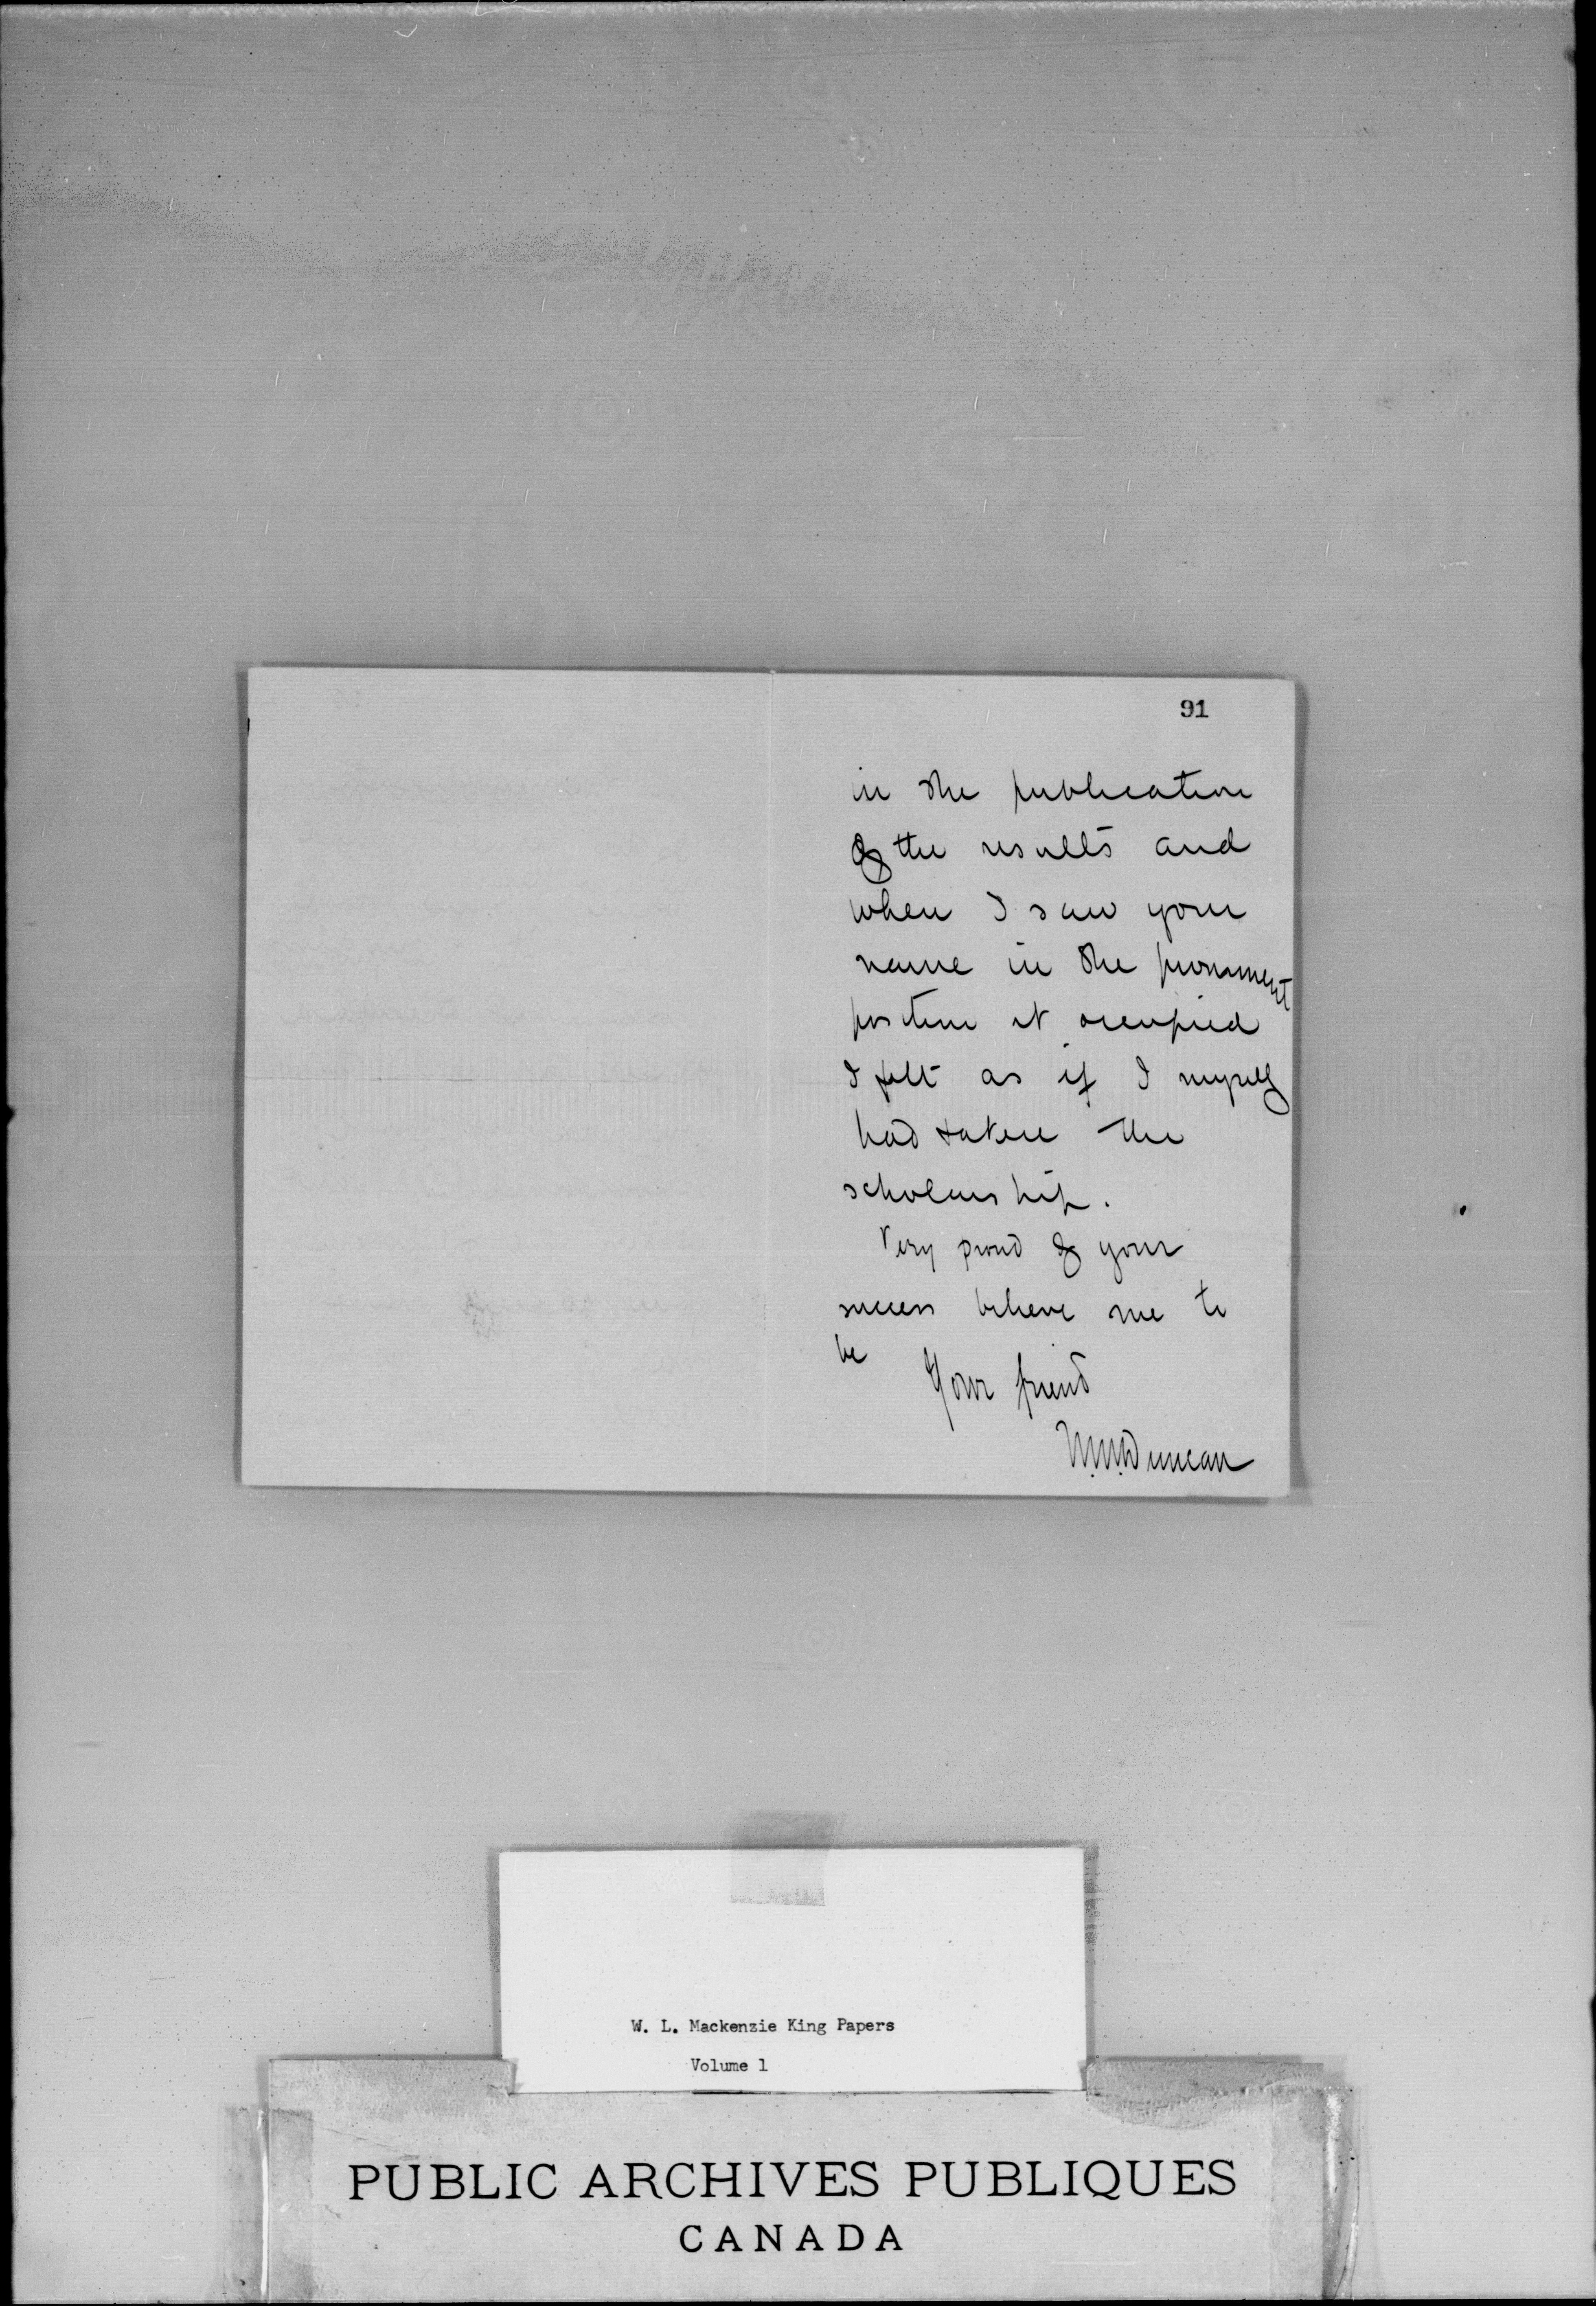 91
in the publication
of the results and
when I saw your
name in the prominent
position it occupied
I felt as if I myself
had taken the
scholarship.
Very proud of your
success believe me to
be
Your friend
Duncan
W. L. Mackenzie King Papers
Volume 1
PUBLIC ARCHIVES PUBLIQUES
CANADA